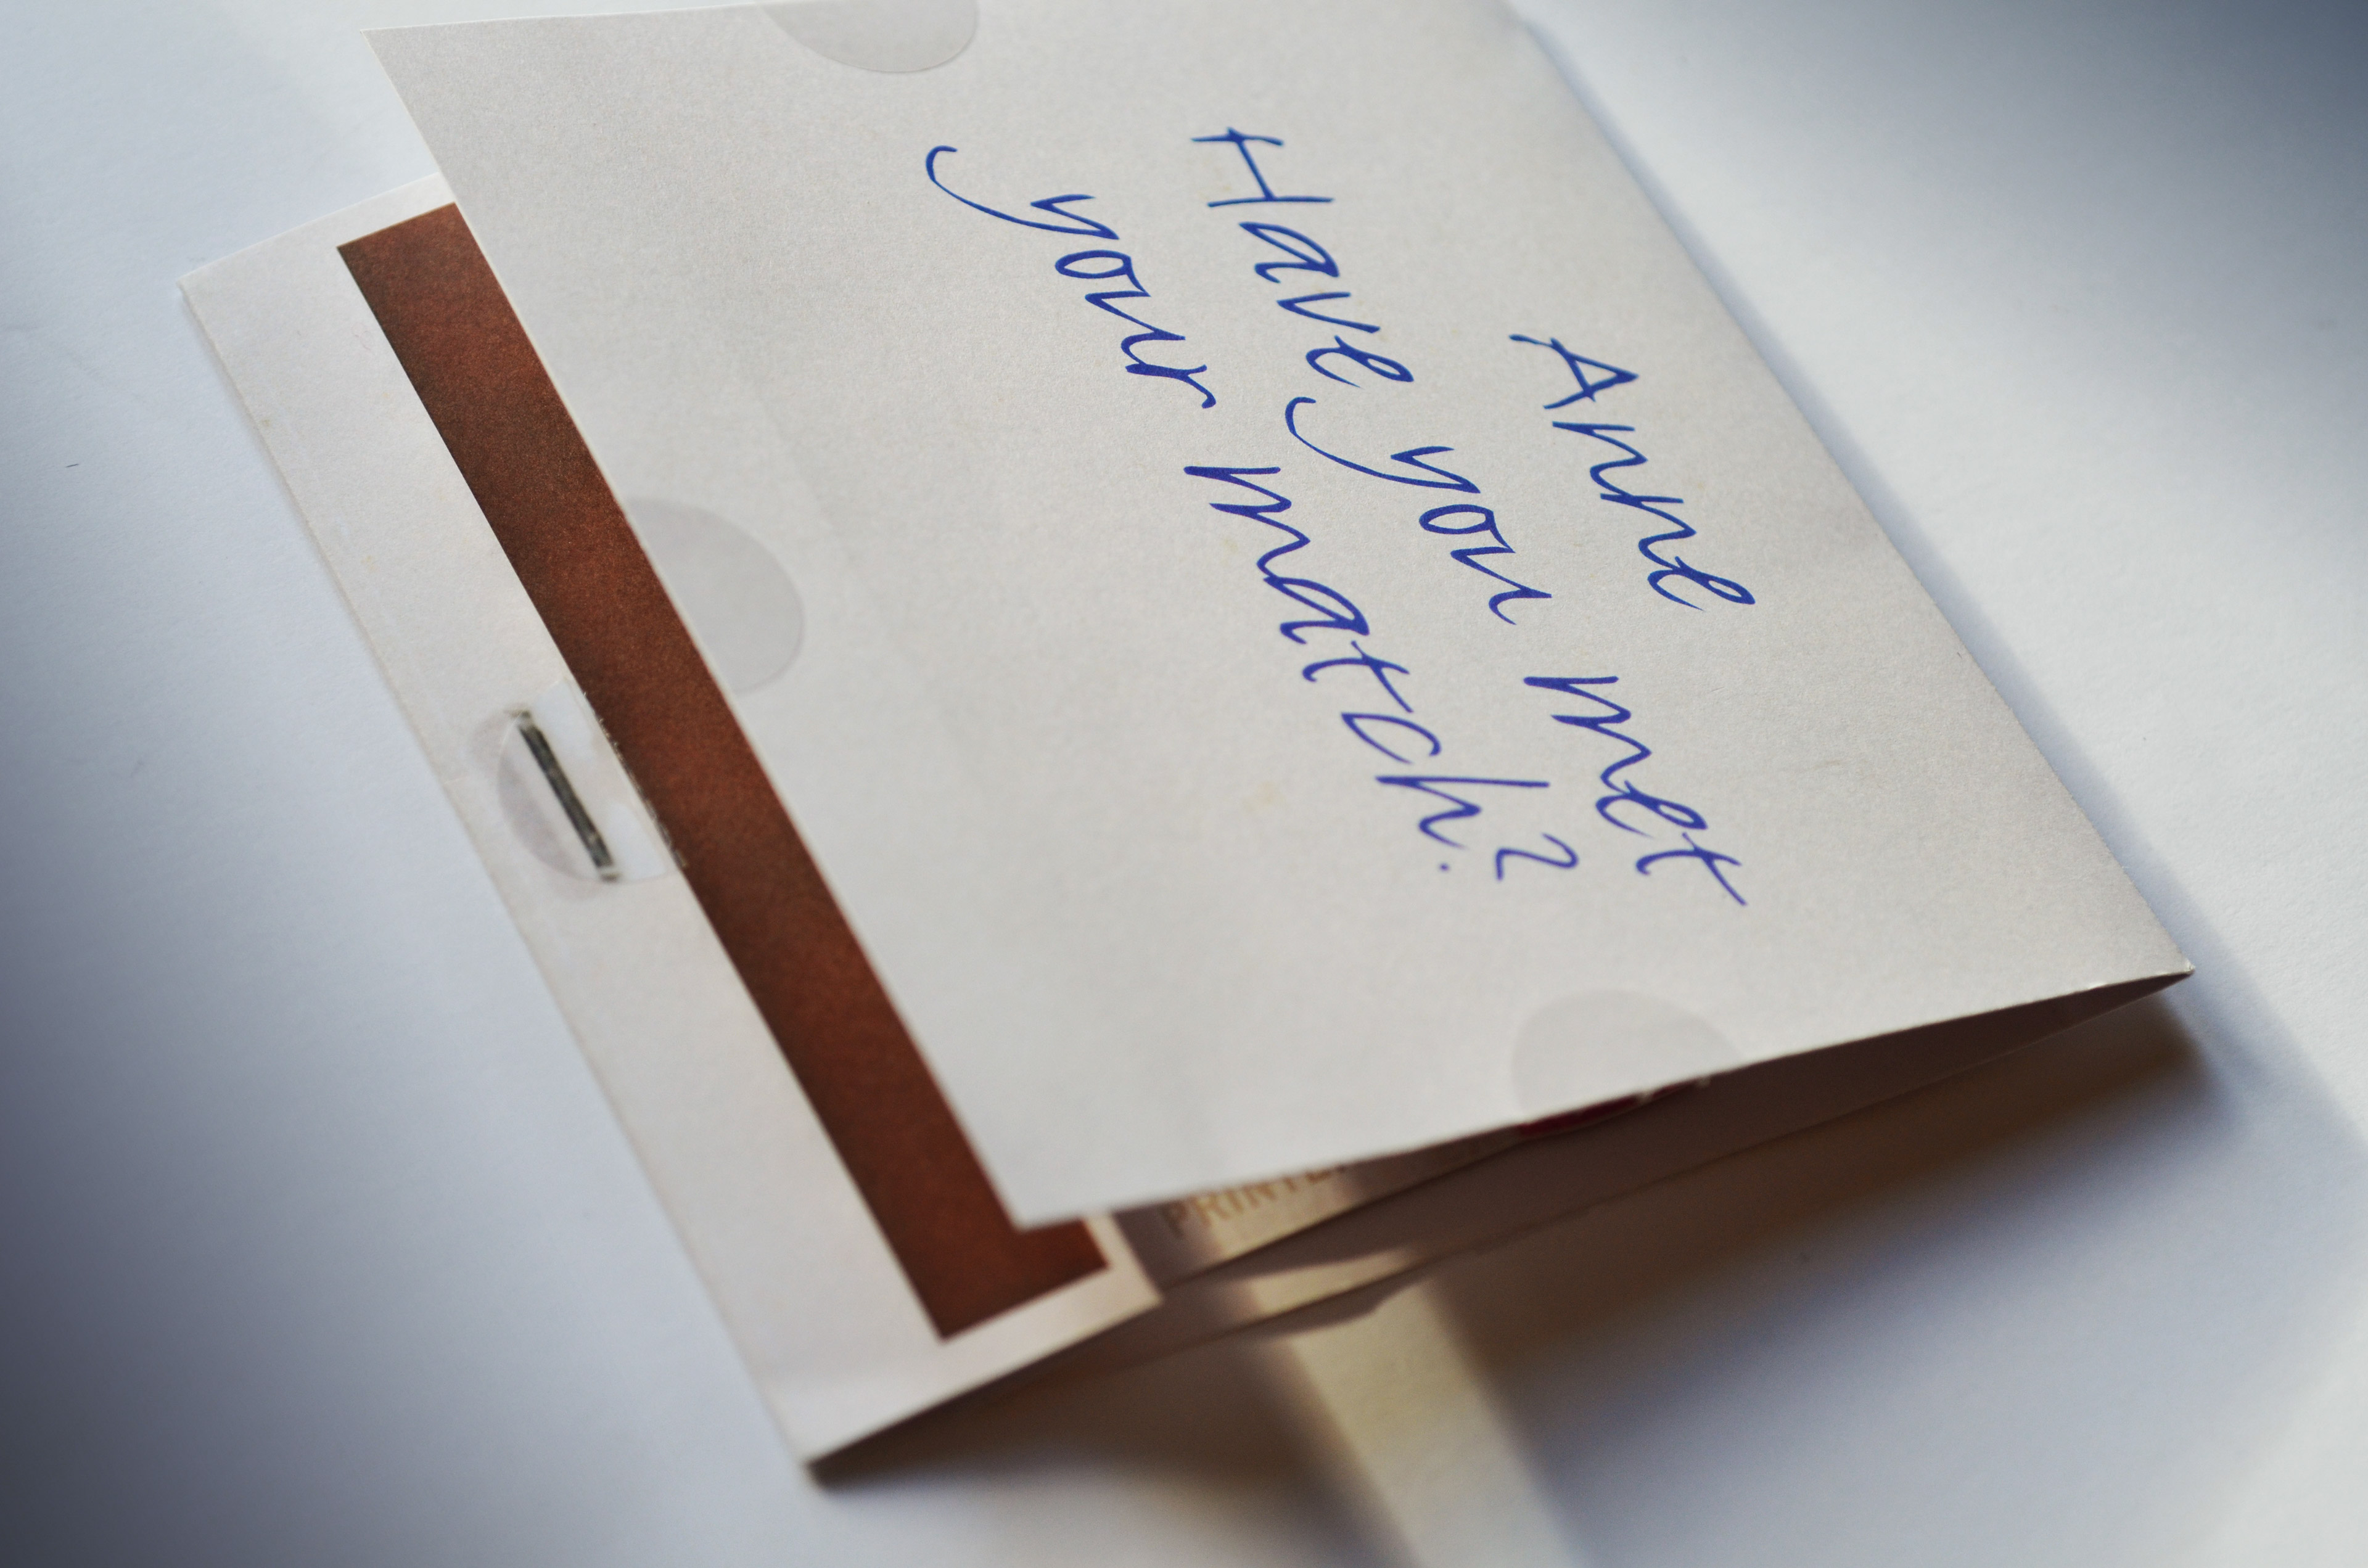 Anne
Have you met
your match?